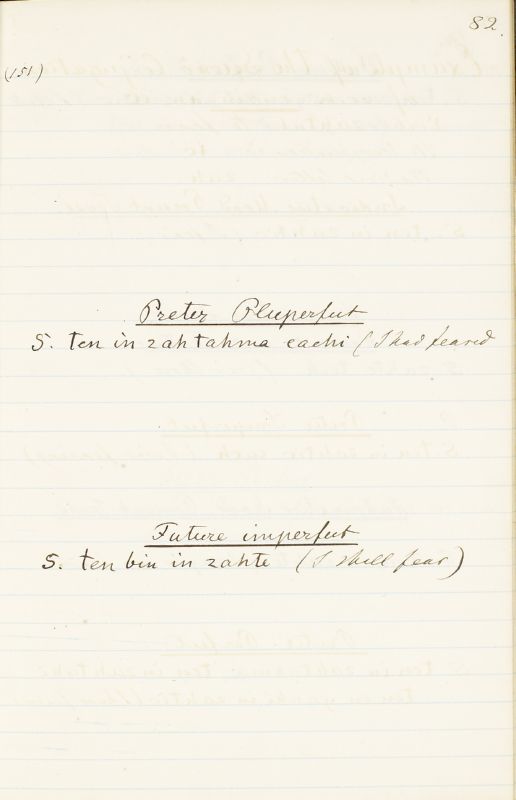 82.
(151)
Preter Pluperfect
S. ten in zahtahma cachi (I had feared
Future imperfect
S. ten bin in zahte (I shall fear)